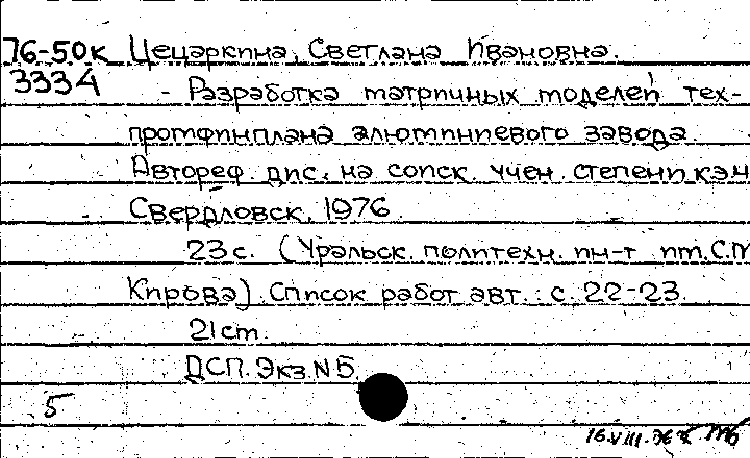 76-50к Цецаркина, Светлана Ивановна.
3334
- Разработка матричных моделей тех-
промфинплана алюминиевого завода.
Автореф. дис. на соиск. учен. степени кан
Свердловск, 1976
23 с. (Уральск. политехн. ин-т им. С.М
Кирова). Список работ авт.: с. 22-23
21 cm.
ДСП. Экз. № Б
5
16.VIII.76